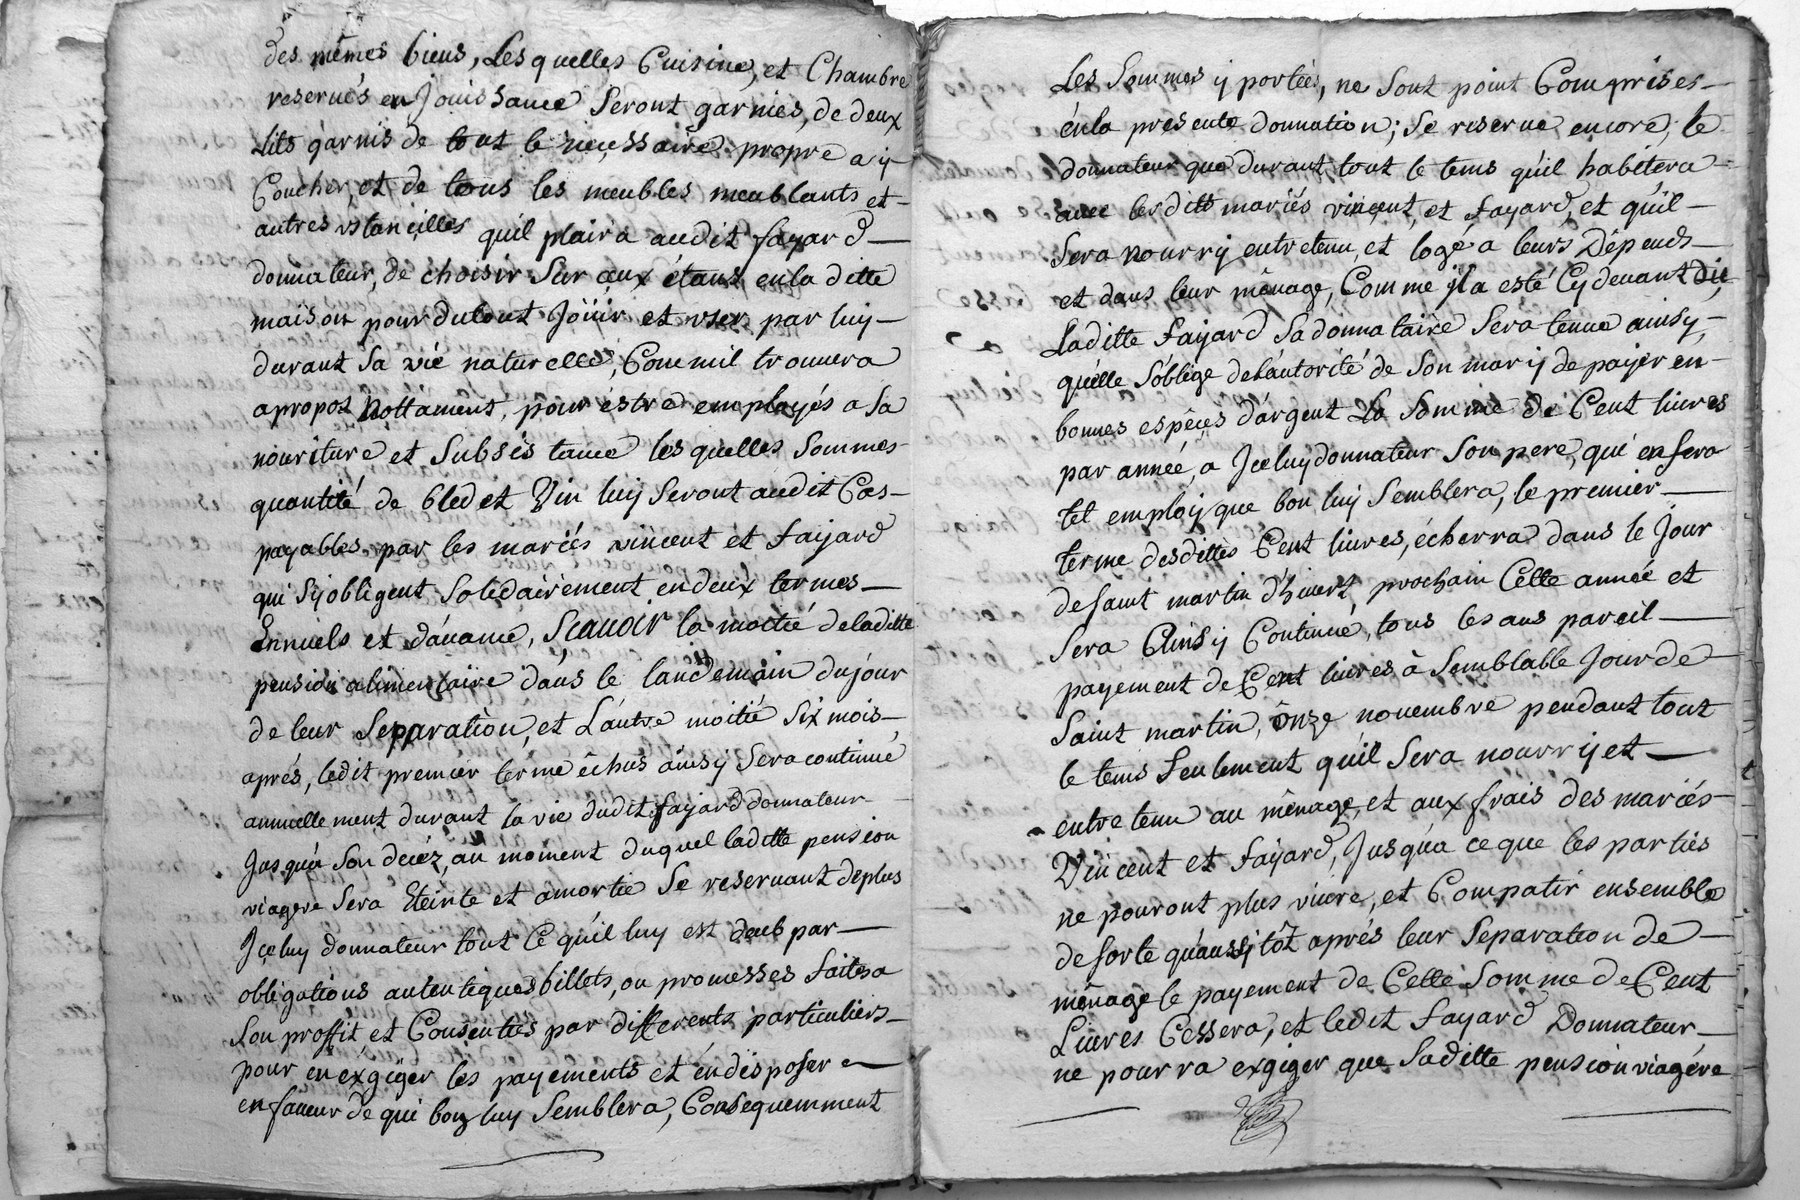 des mêmes biens, Lesquelles Cuisine, et Chambre
reservés en Jouissance Seront garnies, de deux
Lits garnis de tout le necessaire propre a y
Coucher, et de tous les meubles meublants et
autres ustancilles qu'il plaira audit fayard
donnateur, de choisir Sur ceux étans en la ditte
maison pour du tout Jöüir et vser par luy
durant Sa vie naturelle, Comm'il trouuera
apropos Nottament, pour éstre employés a Sa
nouriture et Subsistance les quelles Sommes
quantité de bled et Vin luy Seront audit Cas
payables par les mariés vincent et fayard
qui S'y obligent Solidairement en deux termes
Ennuels et d'auance, Sçauoir la moitié de laditte
pension alimentaire dans le landemain du jour
de leur Sepparation, et L'autre moitié Six mois
aprés, ledit premier terme êchus ainsy Sera continué
annuellement durant la vie dudit fayard donnateur
Jusqu'a Son decéz, au moment duquel laditte pension
viagere Sera Eteinte et amortie Se reseruant deplus
Jceluy donnateur tout Ce qu'il luy est deub par
obligations autentiques billets, ou promesses faites a
Son proffit et Consenties par differents particuliers
pour en éxgiger les payements et en disposer
en faueur de qui bon luy Semblera, Consequemment
Les Sommes y portées, ne Sont point Comprises
en la presente donnation; Se reserue encore, le
donnateur que durant tout le tems qu'il habitera
auec lesditts mariés vincent, et fayard, et qu'il
Sera nourry entretenu, et logé a leurs Dépends
et dans leur ménage, Comme jl a esté Cy deuant dit
Laditte fayard Sa donnataire Sera tenue ainsy
qu'elle S'oblige de l'autorité de Son mary de payer en
bonnes espêces d'argent La Somme de Cent liures
par année, a Jceluy donnateur Son pere, qui en fera
tel employ que bon luy Semblera, le premier
terme desdittes Cent liures, écherra dans le Jour
de saint martin d'hiuert, prochain Cette année et
Sera Ainsy Continué, tous les ans pareil
payement de Cent liures à Semblable Jour de
Saint martin, onze nouembre pendant tout
le tems Seulement qu'il Sera nourry et
entretenu au ménage, et aux frais des mariés
Vincent et fayard, Jusqu'a ce que les parties
ne pouront plus viure, et Compatir ensemble
de sorte qu'aussytôt aprés leur Separation de
ménage le payement de Cette Somme de Cent
Liures Cessera, et ledit fayard Donnateur
ne pourra exgiger que Saditte pension viagére